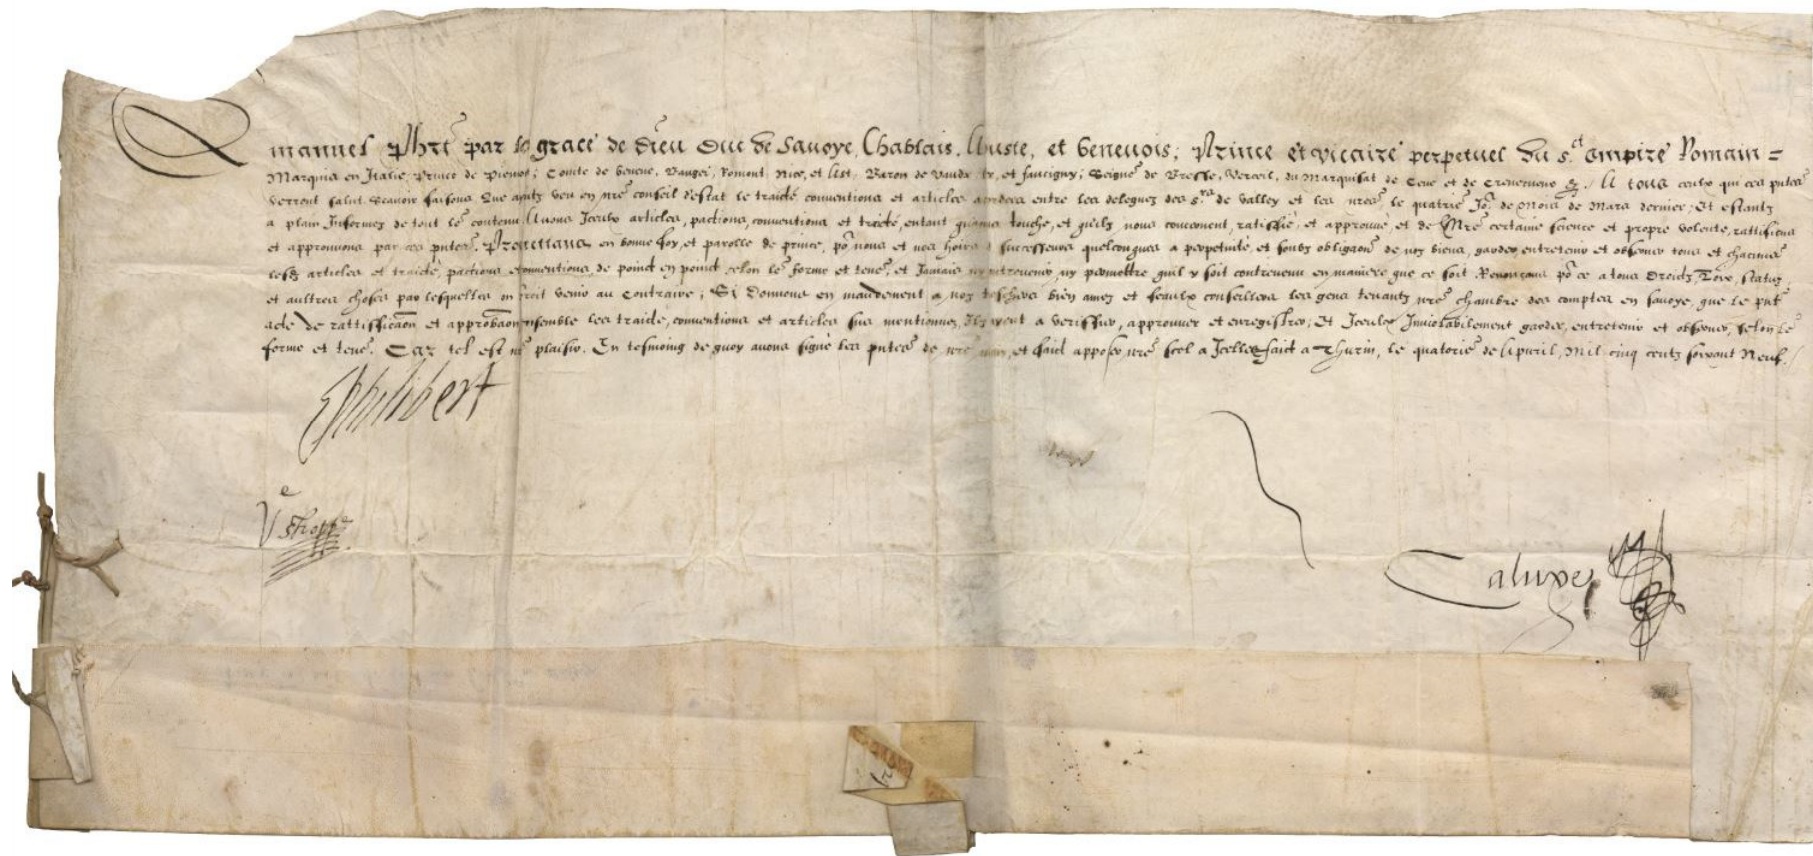 Emanuel Phrt par la grace de Dieu Duc de Savoye, Chablais, Auste, et Genevois; Prince et vicaire perpetuel du s.ct Empire Romain =
Marquis en Italie, Prince de Piemot; Comte de Geneve, Baugei, Romont, Nice, et Ast; Baron de Vaudx, et faucigny; Seignr de Bresse, Verceil, du Marquisat de Ceve et de A tous ceulx qui ces pntes
verront salut. Scavoir faisons Que ayants veu en nre conseil d'estat le traicté, conventions et articles entre les deleguez des srs de Valley et les nres le quatrie Jor de Mois de Mars dernier; Et estants
a plain Informez de tout le contenu, Avons Iceulx articles, pactions, conventions et traicté, entant touche, et qu'ilz nous concernent, ratiffié, et approuvé, et de Nre certaine science et propre volente, rattifions
et approuvons par ces pntes. Promettans en bonne foy, et parolle de prince, pō nous et nos hoirs successeurs quelconques a perpetuité, et soubz obligaon de noz biens, garder, entretenir et observer tous et chacuns
lesd articles et traicté, pactions conventions, de poinct en poinct selon le forme et tene, et Jamais ny permettre quil y soit contrevenu en maniere que ce soit Renonçans pō ce a tous droictz, Loix, status,
et aultres choses par lesquelles on venir au contraire; Si Donnons en mandement a noz bien amez et feaulx conseillers les gens tenants nre chambre des comptes en savoye, que le pnt
acte de rattifficaōn et approbaōn ensemble les traicte, conventions et articles sus mentionnez, a veriffier, approuver et enregistrer; Et Iceulx Inviolabilement garder, entretenir et observer, selon le
forme et tene. Car tel est nre plaisir. En tesmoing de quoy avons signé les pntes de nre, et faict apposer nre scel a Icelles faict a Thurin, le quatorie de Apvril, Mil cinq cents soixant Neuf.
EPhilibert
Caluxe